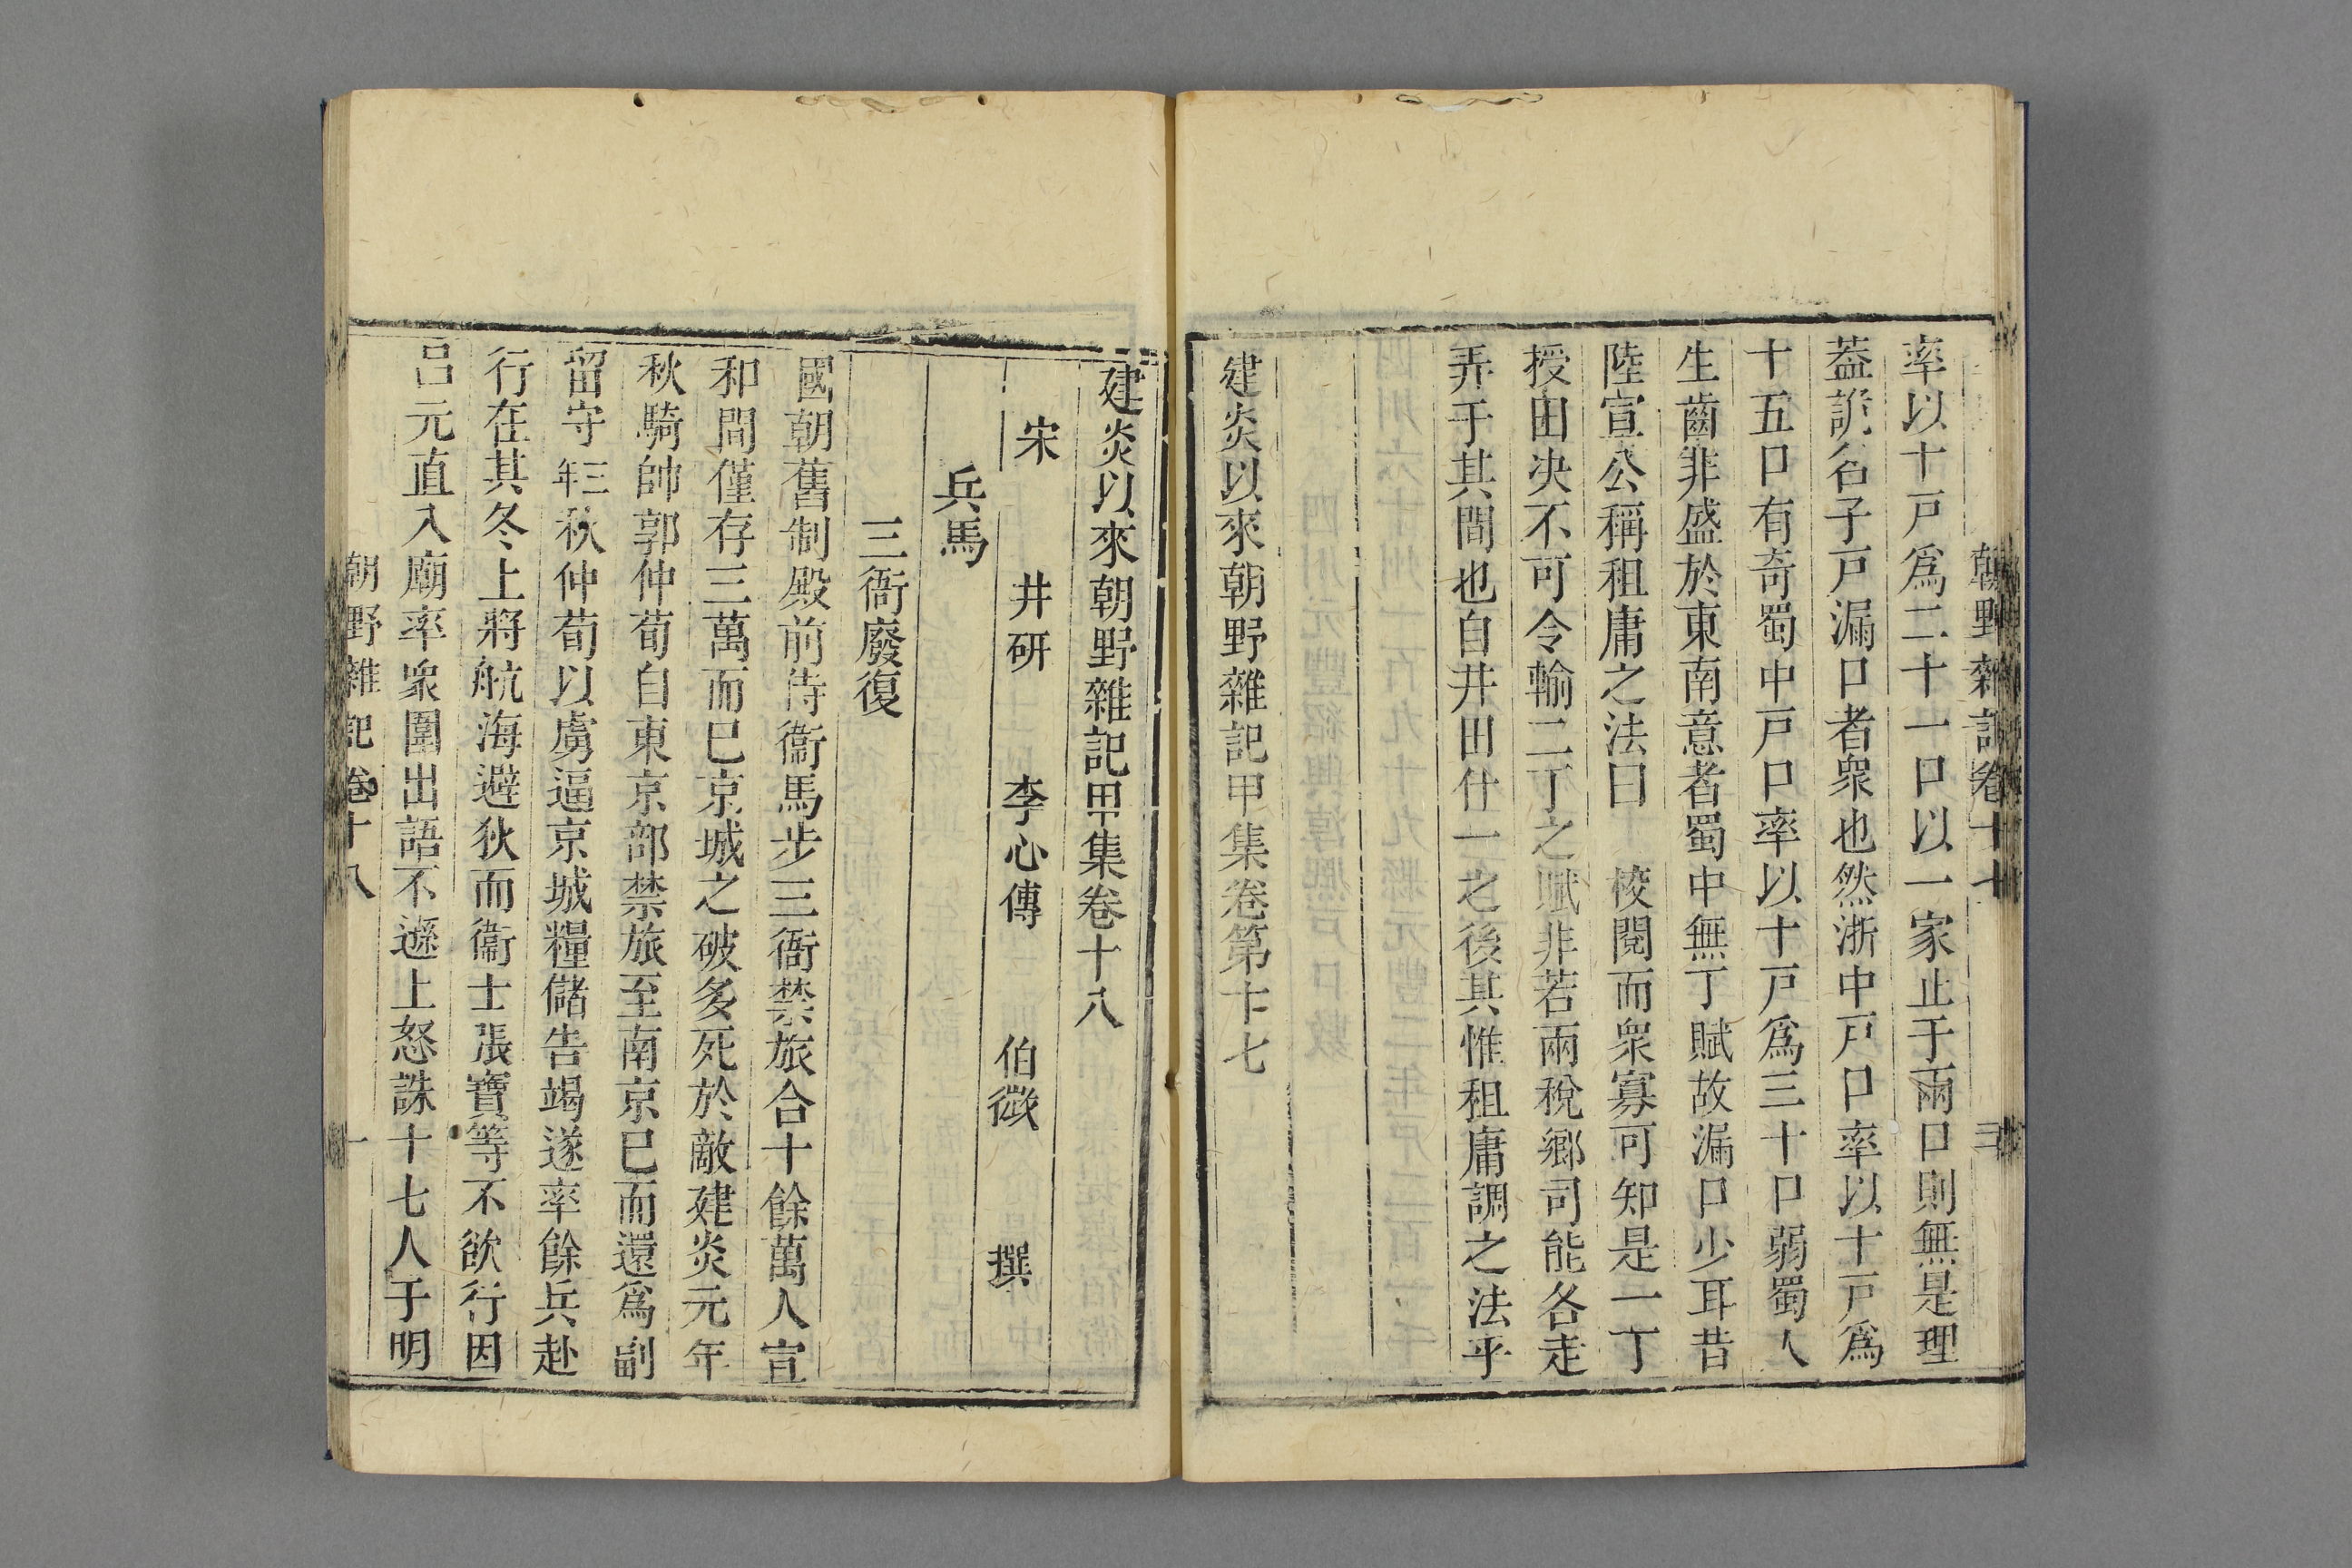 朝野雜記卷十七 三
率以十戸爲二十一口以一家止于兩口則無是理
蓋詭名子戸漏口者衆也然浙中戸口率以十戸爲
十五口有奇蜀中戸口率以十戸爲三十口弱蜀人
生齒非盛於東南意者蜀中無丁賦故漏口少耳昔
陸宣公稱租庸之法曰 校閱而衆寡可知是一丁
授田决不可令輸二丁之賦非若兩稅鄉司能各走
弄于其間也自井田什一之後其惟租庸調之法乎
建炎以來朝野雜記甲集卷第十七
建炎以來朝野雜記甲集卷十八
宋 井研 李心傳 伯徵 撰
兵馬
三衙廢復
國朝舊制殿前侍衞馬步三衙禁旅合十餘萬人宣
和間僅存三萬而已京城之破多死於敵建炎元年
秋騎帥郭仲荀自東京部禁旅至南京已而還爲副
留守三年秋仲荀以虜逼京城糧儲告竭遂率餘兵赴
行在其冬上將航海避狄而衞士張寶等不欲行因
呂元直入廟率衆圍出語不遜上怒誅十七人于明
朝野雜記卷十八 一